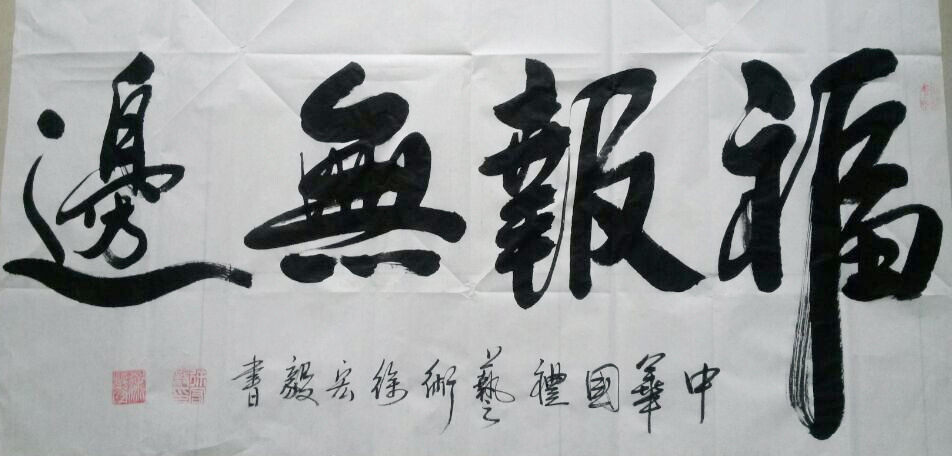 福報無邊
中華國禮藝術徐宏毅書